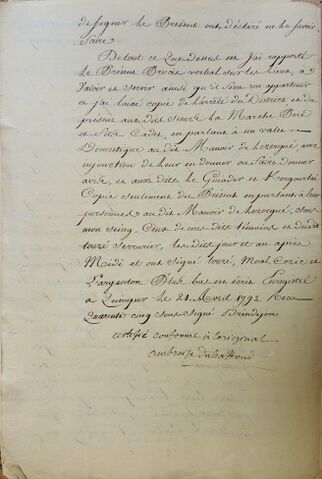 de signer le présent ont déclaré ne le savoir
faire.
De tout ce que dessus en J'ai rapporté
le présent Procès verbal sur les lieux, à
valoir et servir ainsi qu'il sera vu appartenir
en j'ai laissé copie de l'arrêté du District et du
présent aux dits sieurs la Marche Bré
et Cadet, en parlant à un valet
Domestique au dit Manoir de Lezergué avec
injonction de leur en donner ou faire donner
avis, et aux dits le Guiader et Kergourlai
Copie seulement du Présent en parlant à leur
personnes au dit Manoir de Lezergué, sous
mon seing, Ceux de mes dits témoins et du dit
serrurier, les dits jour et an après
Midi et ont signé
Plus bas est écrit Enregistré
à Quimper le 21 Avril 1792. Reçu
Quarante cinq sous signé
certifié conforme à l'original
ambroise